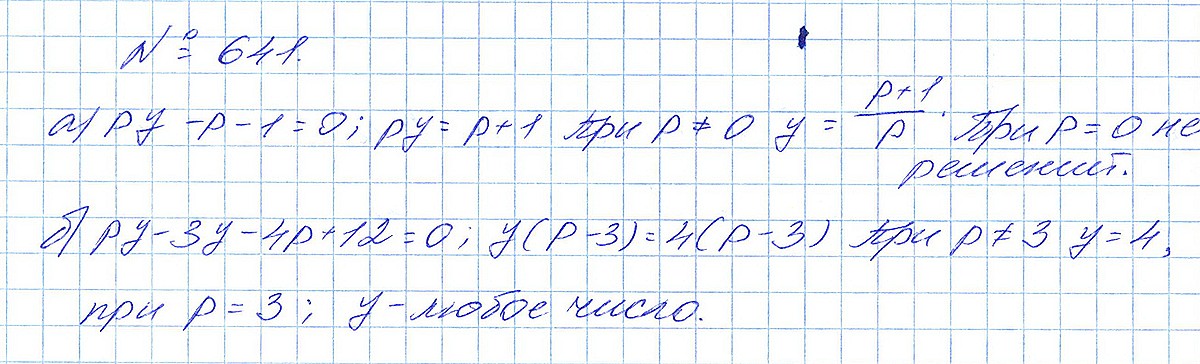 № 641.
а) py - p - 1 = 0; py = p+1 при p ≠ 0 y = \frac{p+1}{p}. При p = 0 не
решений.
б) py - 3y - 4p + 12 = 0; y(p - 3) = 4(p - 3) при p ≠ 3 y = 4,
при p = 3; y - любое число.